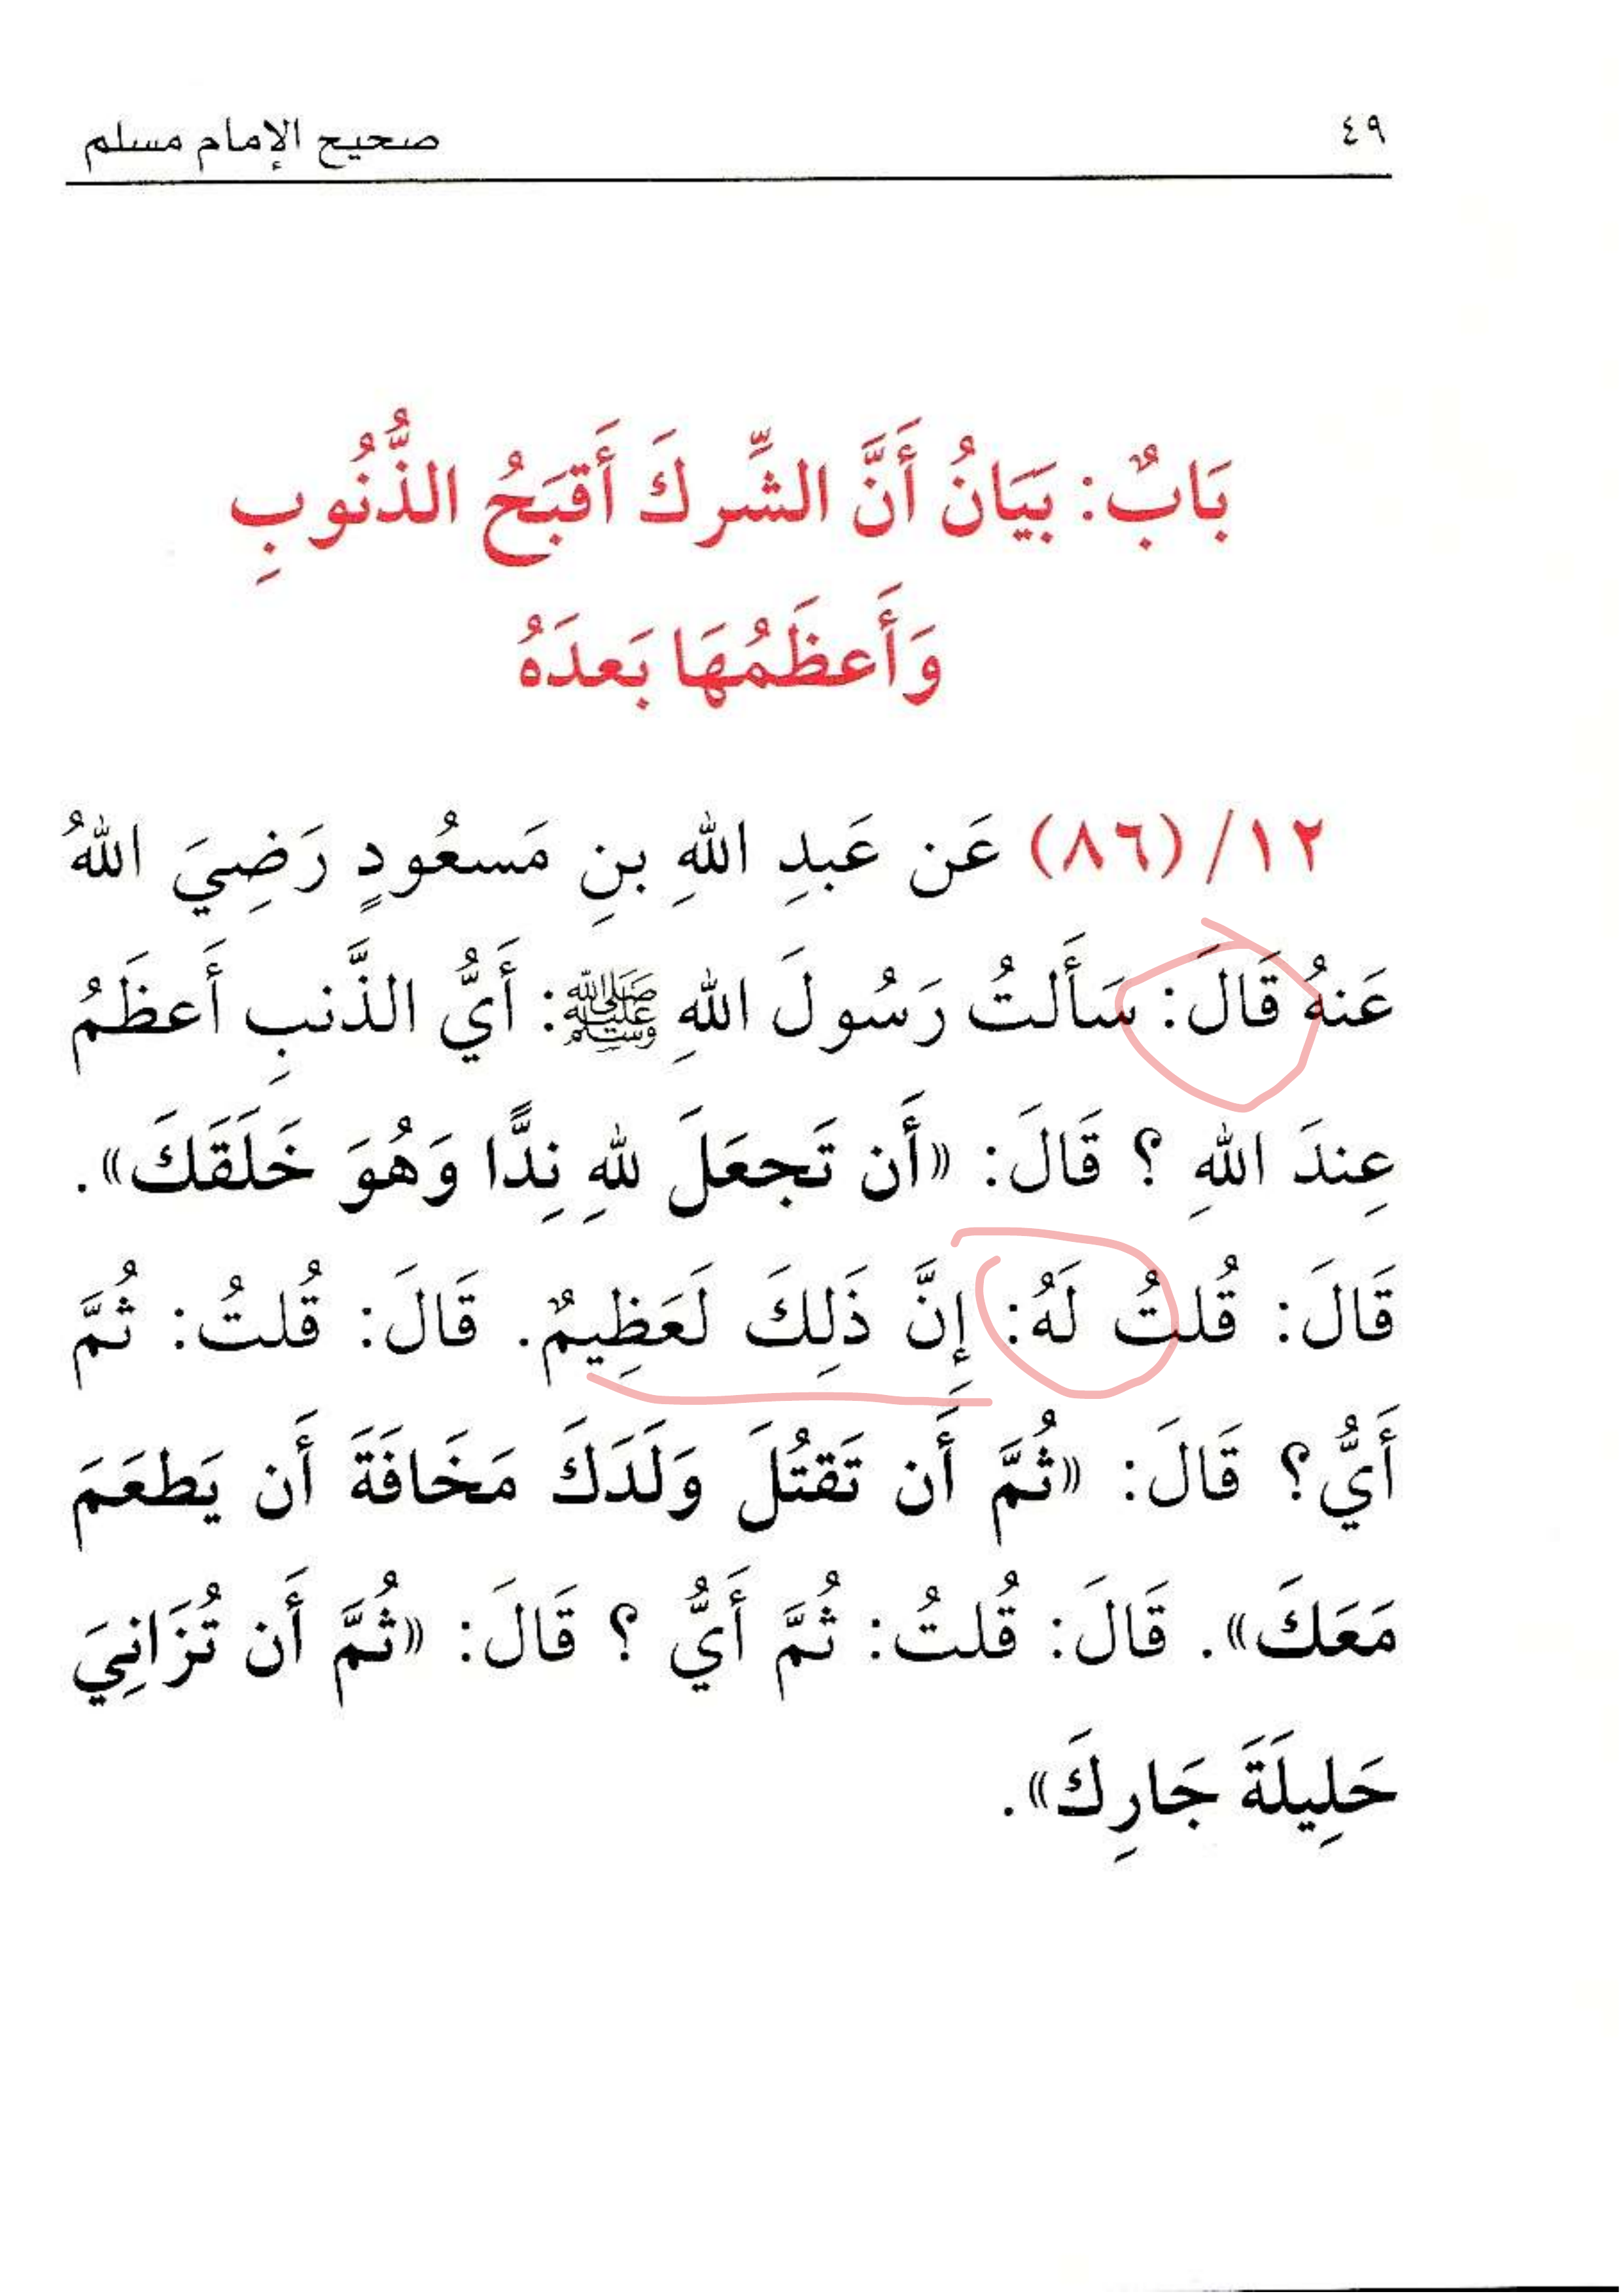 ٤٩
صحيح الإمام مسلم
بَابٌ: بَيَانُ أَنَّ الشِّركَ أَقبَحُ الذُّنُوبِ
وَأَعظَمُهَا بَعدَهُ
١٢/ (٨٦) عَن عَبدِ اللهِ بنِ مَسعُودٍ رَضِيَ اللهُ
عَنهُ قَالَ: سَأَلتُ رَسُولَ اللهِ ﷺ: أَيُّ الذَّنبِ أَعظَمُ
عِندَ اللهِ ؟ قَالَ: «أَن تَجعَلَ للهِ نِدًّا وَهُوَ خَلَقَكَ».
قَالَ: قُلتُ لَهُ: إِنَّ ذَلِكَ لَعَظِيمٌ. قَالَ: قُلتُ: ثُمَّ
أَيُّ؟ قَالَ: «ثُمَّ أَن تَقتُلَ وَلَدَكَ مَخَافَةَ أَن يَطعَمَ
مَعَكَ». قَالَ: قُلتُ: ثُمَّ أَيُّ ؟ قَالَ: «ثُمَّ أَن تُزَانِيَ
حَلِيلَةَ جَارِكَ».